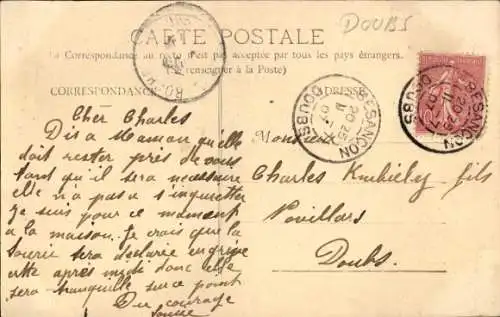 DOUBS
CARTE POSTALE
La Correspondance au recto n'est pas acceptée par tous les pays étrangers.
(Se renseigner à la Poste)
CORRESPONDANCE
ADRESSE
BESANÇON
DOUBS
BESANÇON
DOUBS
Cher Charles
Dis a Maman qu'elle
doit rester près de vous
tant qu'il sera nécessaire
elle n'a pas a s'inquietter
Je suis pour ce moment
a la maison. Je crois que la
sera déclarée en grippe
cette après midi donc elle
sera tranquille sur ce point
Du courage
Monsieur
Charles fils
Novillars
Doubs.